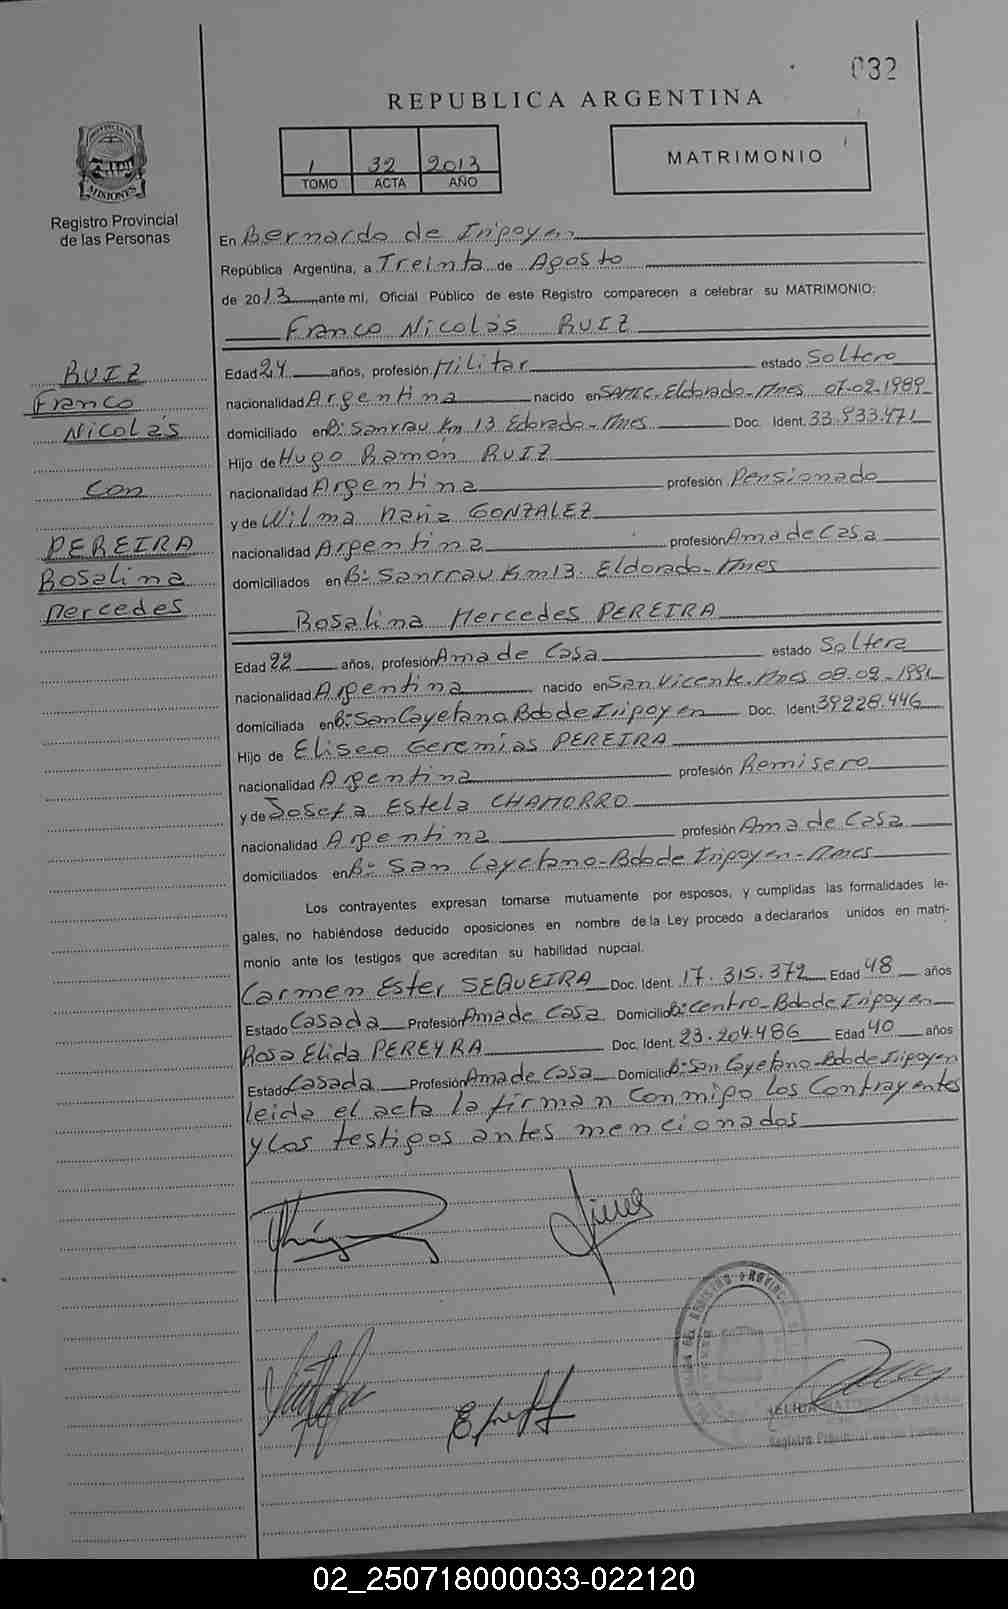 032
REPUBLICA ARGENTINA
PROVINCIA DE
MISIONES
1 32 2013
TOMO ACTA AÑO
MATRIMONIO
Registro Provincial
de las Personas
En Bernardo de Iripoyen
República Argentina, a Treinta de Agosto
de 2013 ante mí, Oficial Público de este Registro comparecen a celebrar su MATRIMONIO:
Franco Nicolás RUIZ
RUIZ
Franco
Nicolás
con
PEREIRA
Rosalina
Mercedes
Edad 24 años, profesión Militar estado Soltero
nacionalidad Argentina nacido en SAMIC. Eldorado-Mnes 07-02-1989
domiciliado en B: Sanrrau Km 13 Edorado-Mnes Doc. Ident. 33.933.471
Hijo de Hugo Ramon RUIZ
nacionalidad Argentina profesión Pensionado
y de Wilma Maria GONZALEZ
nacionalidad Argentina profesión Ama de Casa
domiciliados en B: Sanrrau Km 13. Eldorado-Mnes
Rosalina Mercedes PEREIRA
Edad 22 años, profesión Ama de Casa estado Soltera
nacionalidad Argentina nacido en San Vicente. Mnes 08-09-1991
domiciliada en B: San Cayetano Bdo de Iripoyen Doc. Ident 39228.446
Hijo de Eliseo Geremías PEREIRA
nacionalidad Argentina profesión Remisero
y de Josefa Estela CHAMORRO
nacionalidad Argentina profesión Ama de Casa
domiciliados en B: San Cayetano-Bdo de Iripoyen-Mnes
Los contrayentes expresan tomarse mutuamente por esposos, y cumplidas las formalidades le-
gales, no habiéndose deducido oposiciones en nombre de la Ley procedo a declararlos unidos en matri-
monio ante los testigos que acreditan su habilidad nupcial.
Carmen Ester SEQUEIRA Doc. Ident. 17.315.372 Edad 48 años
Estado Casada Profesión Ama de Casa Domicilio B: Centro-Bdo de Iripoyen
Rosa Elida PEREYRA Doc. Ident. 23.204.486 Edad 40 años
Estado Casada Profesión Ama de Casa Domicilio B: San Cayetano-Bdo de Iripoyen
leida el acta la firman conmigo los Contrayentes
y los testigos antes mencionados
02_250718000033-022120